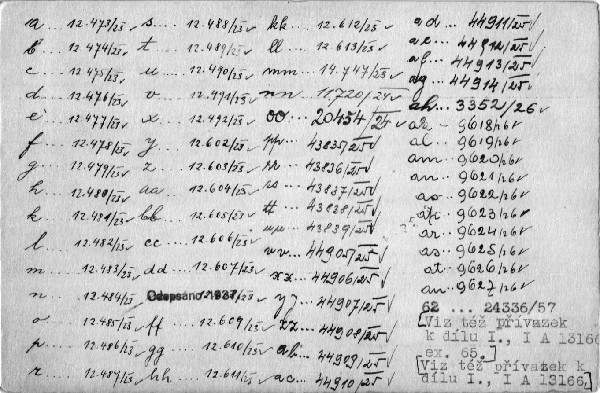 a .. 12.473/25
b 12.474/25
c ... 12.475/25
d ... 12.476/25
e ... 12.477/25
f ... 12.478/25
g ... 12.479/25
h ... 12.480/25
k ... 12.481/25
l ... 12.482/25
m ... 12.483/25
n ... 12.484/25
o ... 12.485/25
p ... 12.486/25
r ... 12.487/25
s ... 12.488/25
t ... 12.489/25
u ... 12.490/25
v ... 12.491/25
x ... 12.492/25
y ... 12.602/25
z ... 12.603/25
aa ... 12.604/25
bb ... 12.605/25
cc ... 12.606/25
dd ... 12.607/25
Odepsáno 1937
ff ... 12.609/25
gg ... 12.610/25
hh ... 12.611/25
kk ... 12.612/25
ll ... 12.613/25
mm ... 14.747/25
nn ... 11.720/24
oo ... 20454/24
pp ... 43835/25
rr ... 43836/25
ss ... 43837/25
tt ... 43838/25
uu ... 43839/25
vv ... 44905/25
xx ... 44906/25
yy ... 44907/25
zz ... 44908/25
ab ... 44909/25
ac ... 44910/25
ad ... 44911/25
ae ... 44912/25
af ... 44913/25
ag ... 44914/25
ah ... 3352/26
ak - 9618/26
al . 9619/26
am - 9620/26
an . 9621/26
ao .. 9622/26
ap . 9623/26
ar .. 9624/26
as .. 9625/26
at .. 9626/26
au .. 9627/26
62 ... 24336/57
[Viz též přívazek
k dílu I., I A 13160
ex. 65.]
[Viz též přívazek k
dílu I., I A 13166.]